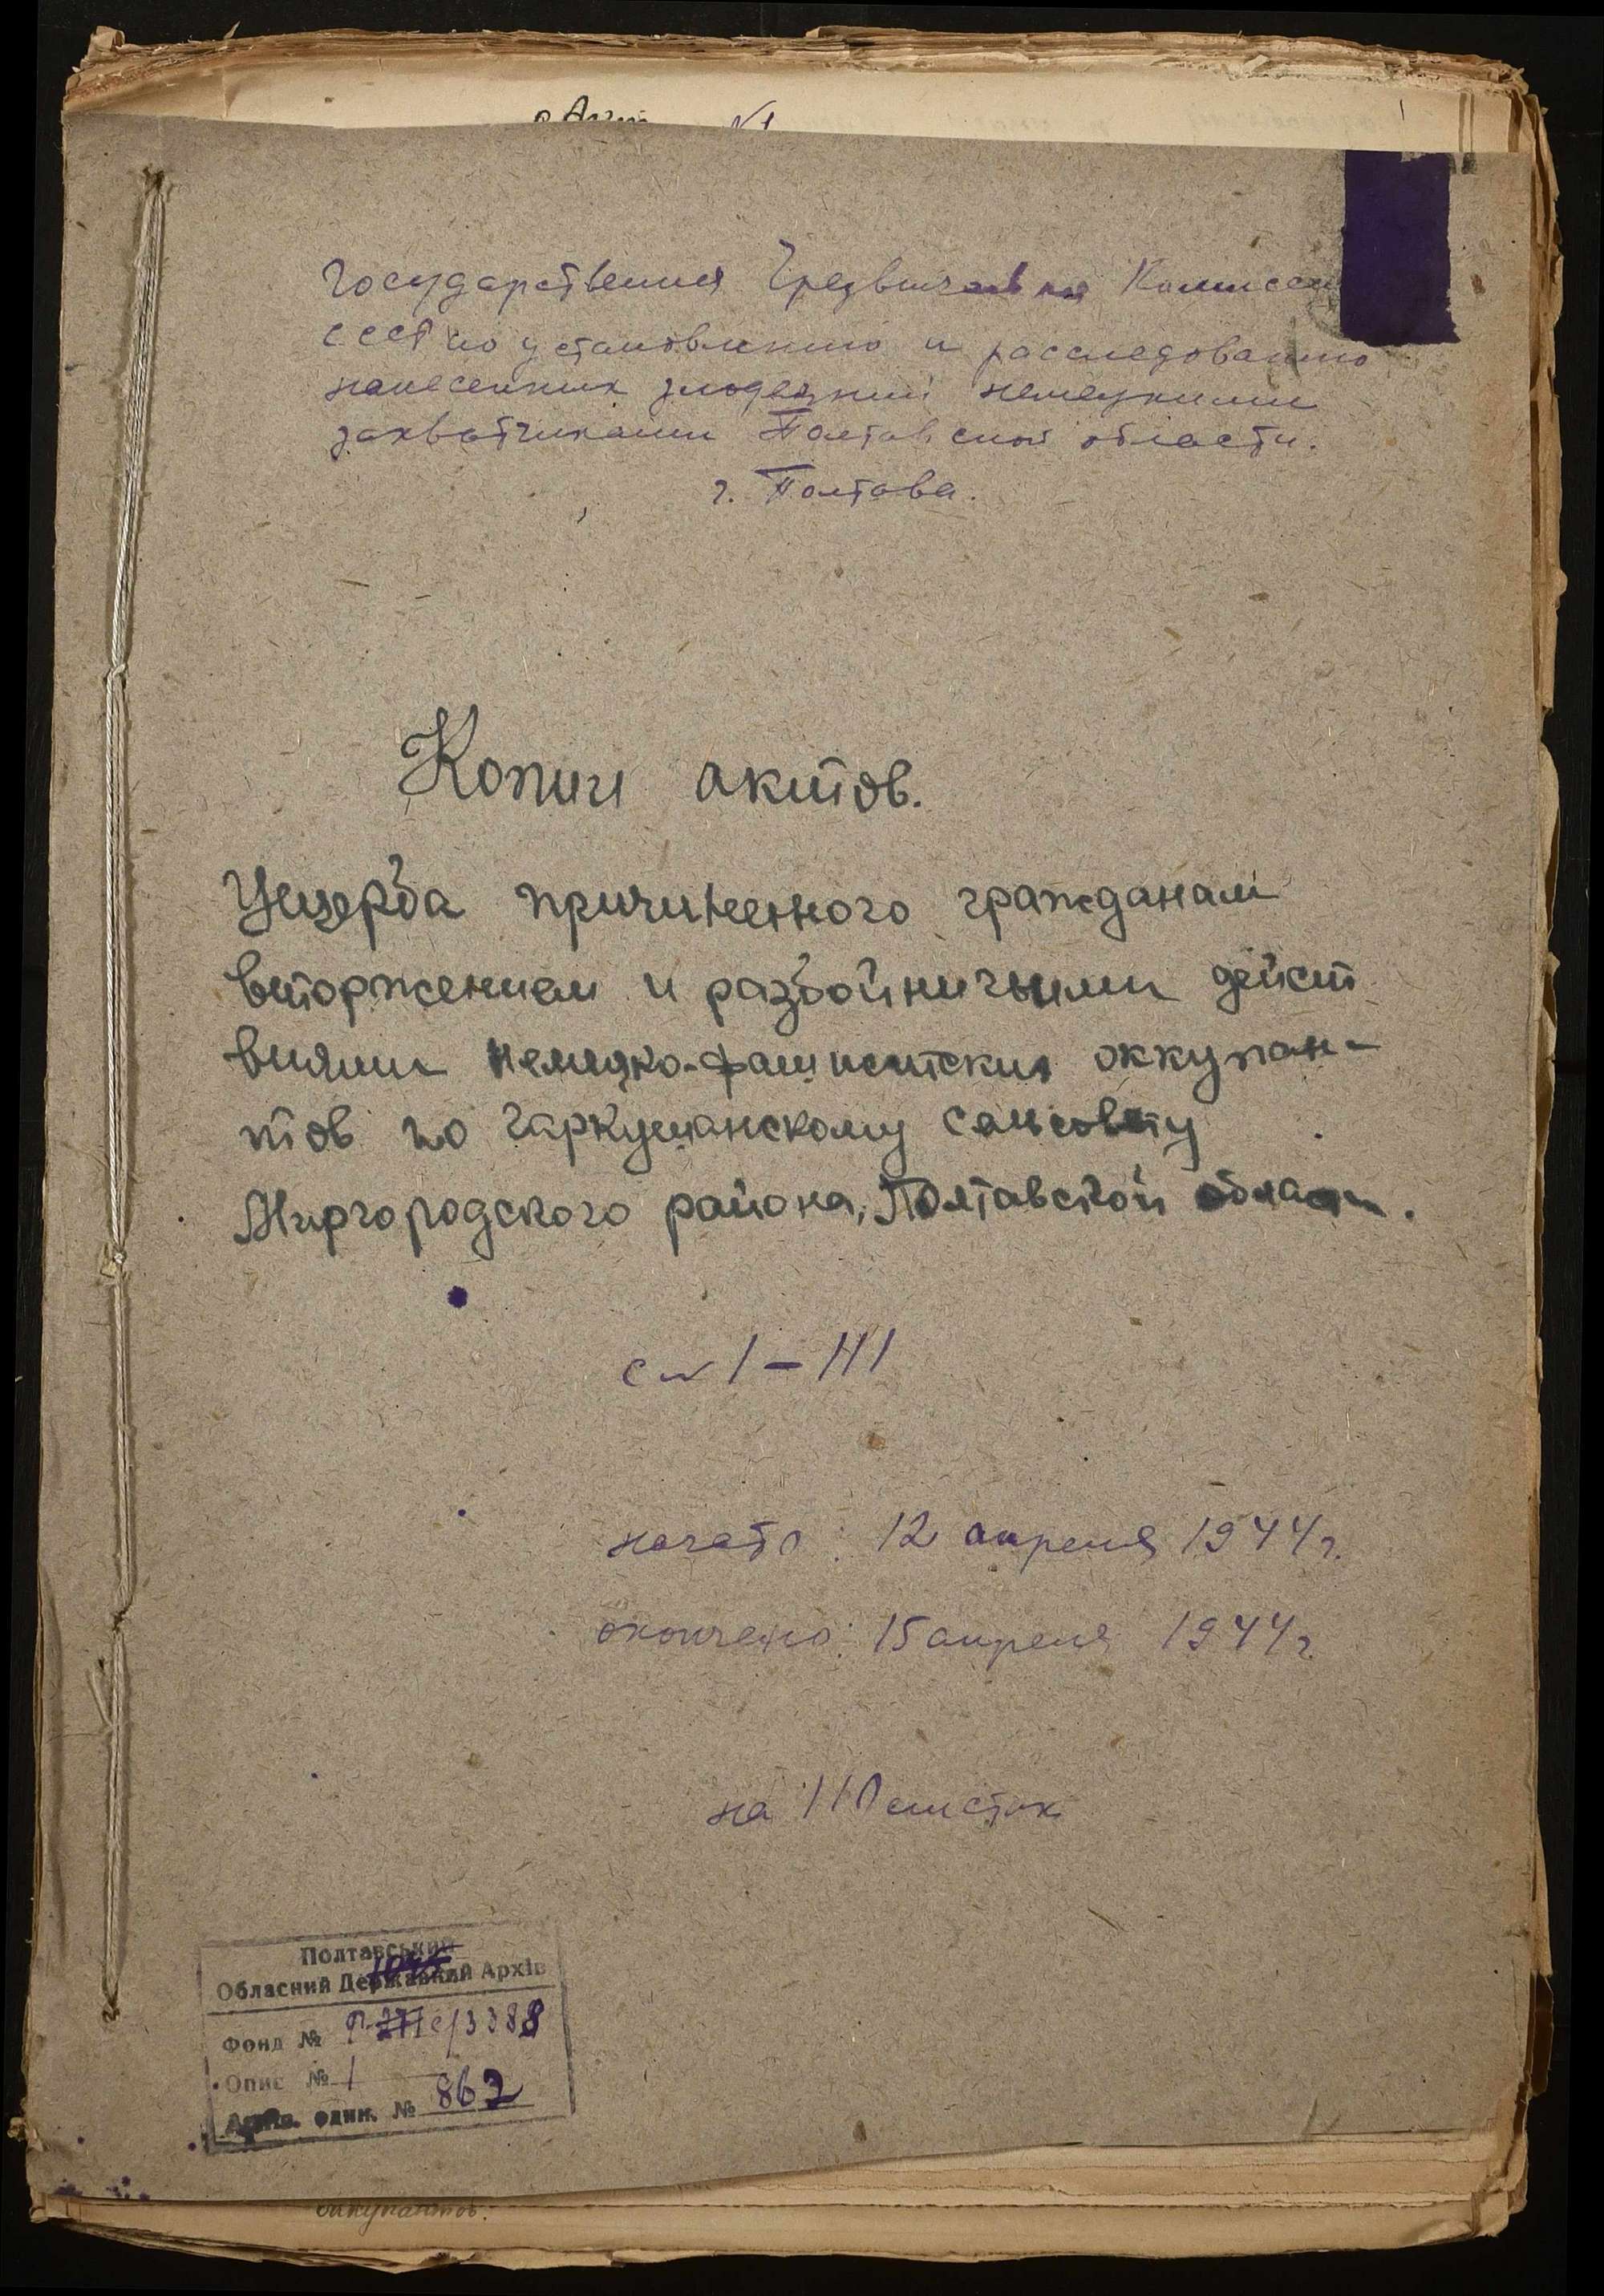 Акт №1
Государственая Чрезвычайная Комиссия
СССР по установлению и расследованию
нанесенних злодеяний немецкими
захватчиками Полтавской области.
г. Полтава.
Копии актов.
Ущерба причиненного гражданам
вторжением и разбойничьими дейст
виями немецко-фашистских оккупан-
тов по Гаркушанскому сельсовету
Миргородского района, Полтавской области.
с № 1 – 111
начато: 12 апреля 1944 г.
окончено: 15 апреля 1944 г.
на 110 листах
Полтавський
Обласний Державний Архів
Фонд № Р- 3388
Опис № 1
один. № 862
оккупантов.